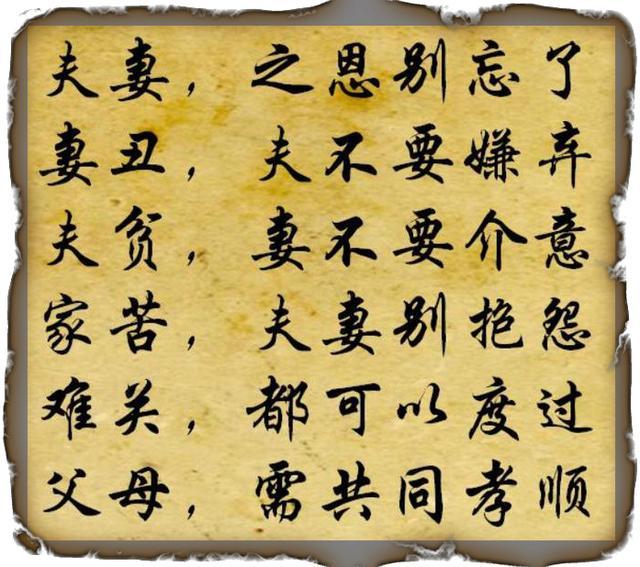 夫妻，之恩别忘了
妻丑，夫不要嫌弃
夫贫，妻不要介意
家苦，夫妻别抱怨
难关，都可以度过
父母，需共同孝顺